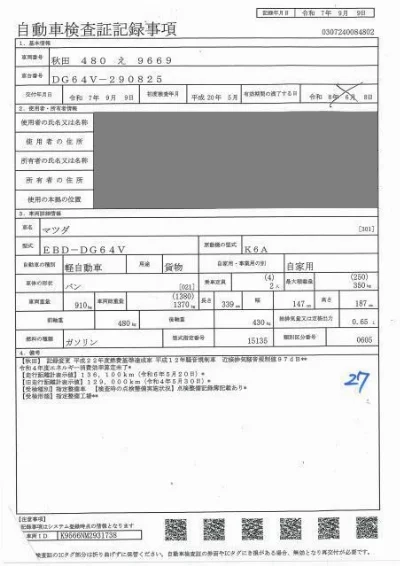 記録年月日 令和 7年 9月 9日
自動車検査証記録事項
0307240084802
1. 基本情報
車両番号 秋田 480 え 9669
車台番号 DG64V-290825
交付年月日 令和 7年 9月 9日 初度検査年月 平成20年 5月 有効期間の満了する日 令和 8年 6月 8日
2. 使用者・所有者情報
使用者の氏名又は名称
使用者の住所
所有者の氏名又は名称
所有者の住所
使用の本拠の位置
3. 車両詳細情報
車名 マツダ [301]
型式 EBD-DG64V 原動機の型式 K6A
自動車の種別 軽自動車 用途 貨物 自家用・事業用の別 自家用
車体の形状 バン [021] 乗車定員 (4) 2人 最大積載量 (250) 350kg
車両重量 910kg 車両総重量 (1380) 1370kg 長さ 339cm 幅 147cm 高さ 187cm
前軸重 480kg 後軸重 430kg 総排気量又は定格出力 0.65L
燃料の種類 ガソリン 型式指定番号 15135 類別区分番号 0605
4. 備考
【秋田】 記録変更 平成22年度燃費基準達成車 平成12年騒音規制車 近接排気騒音規制値97dB**
令和4年度エネルギー消費効率算定完了*
【走行距離計表示値】136,100km(令和6年5月20日)*
【旧走行距離計表示値】129,000km(令和4年5月30日)*
【受検種別】指定整備車 【検査時の点検整備実施状況】点検整備記録簿記載あり*
【受検形態】指定工場**
27
【注意事項】
記録事項はシステム登録時点の情報となります
車両ID K9666NM2931738
検査証のICタグ部分は折り曲げずに保管ください。自動車検査証の券面やICタグにき損がある場合、無効となり再交付が必要です。